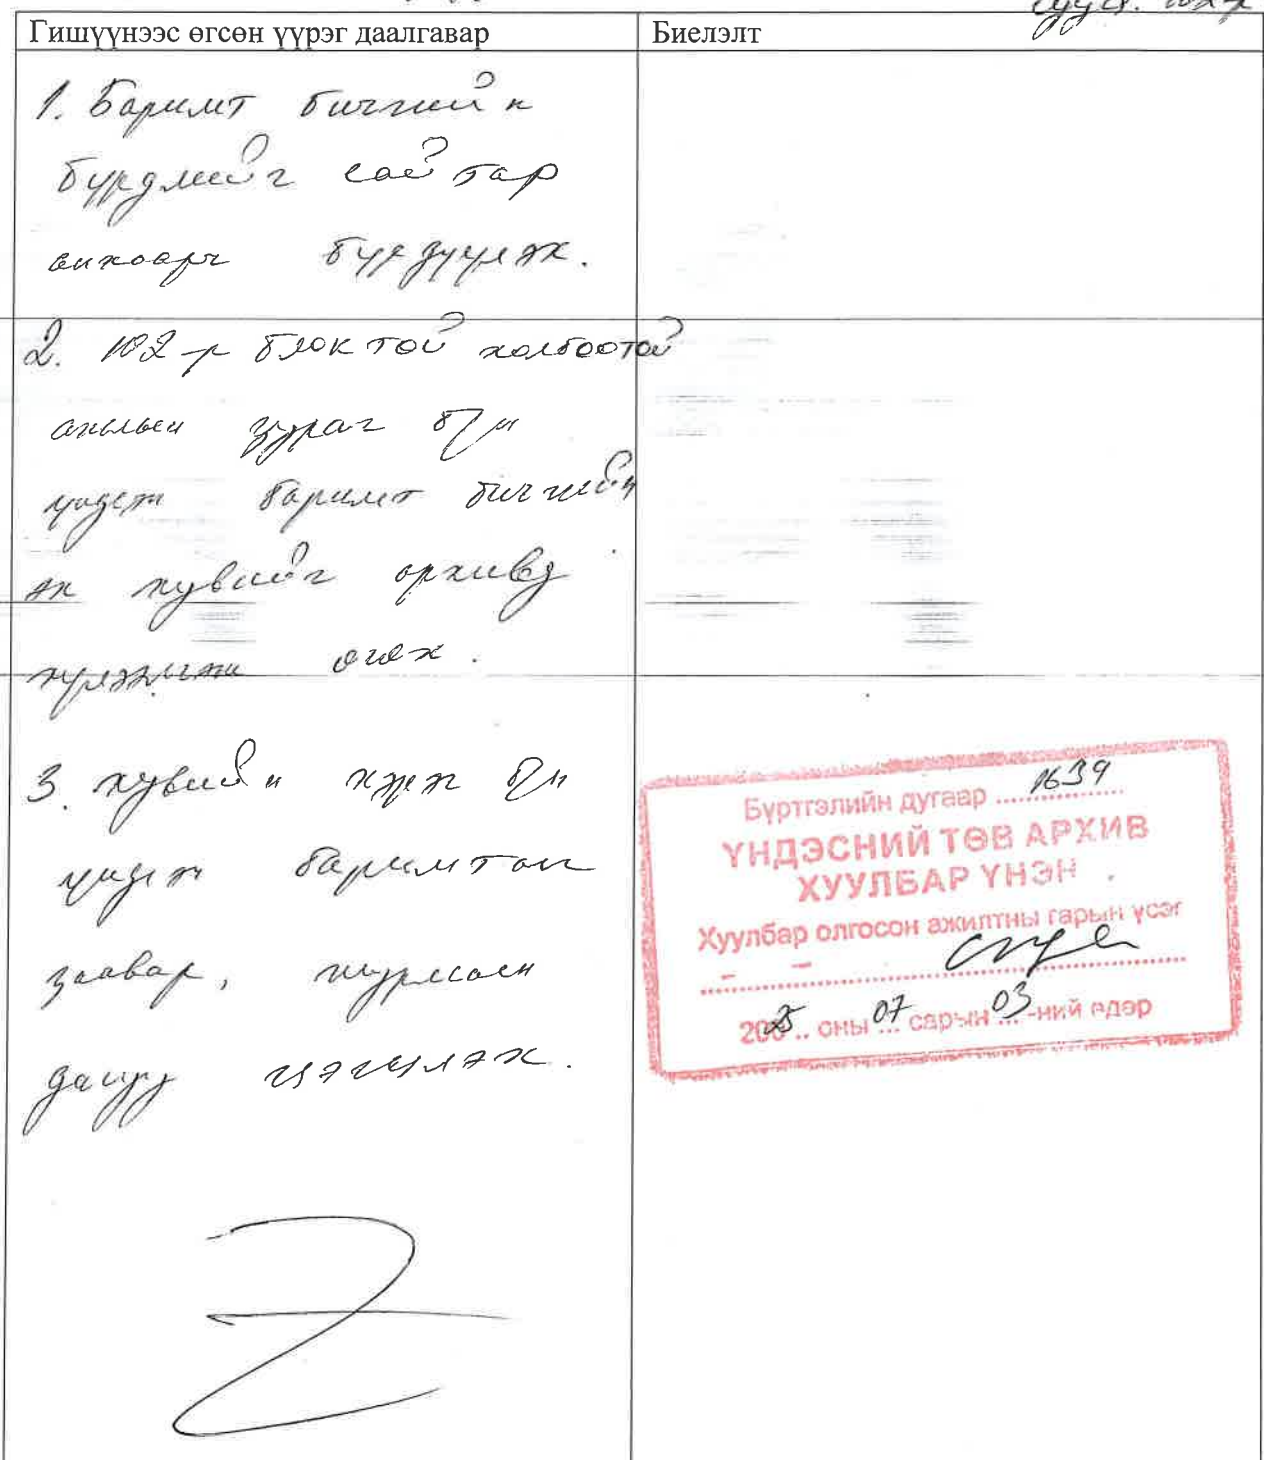 Гишүүнээс өгсөн үүрэг даалгавар
Биелэлт
1. Баримт бичгийн
бүрдлийг сайтар
анхаарч бүрдүүлэх.
2. 102-р блоктой холбоотой
ажлын зураг б/н
үндсэн баримт бичгийн
эх хувийг архивд
хүлээлгэн өгөх.
3. хувийн хэрэг б/н
үндсэн баримтын
заавар, журмын
дагуу цэгцлэх.
Бүртгэлийн дугаар 1639
ҮНДЭСНИЙ ТӨВ АРХИВ
ХУУЛБАР ҮНЭН
Хуулбар олгосон ажилтны гарын үсэг
2025 оны 07 сарын 03 -ний өдөр